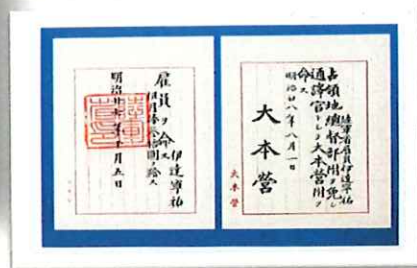 陸軍省雇員伊達寧祐
占領地總督部附ヲ免シ
通譯官トシテ大本營附ヲ
命ス
明治廿八年八月一日
大本營
大本營
伊達寧祐
雇員ヲ命ス
明治廿七年十月五日